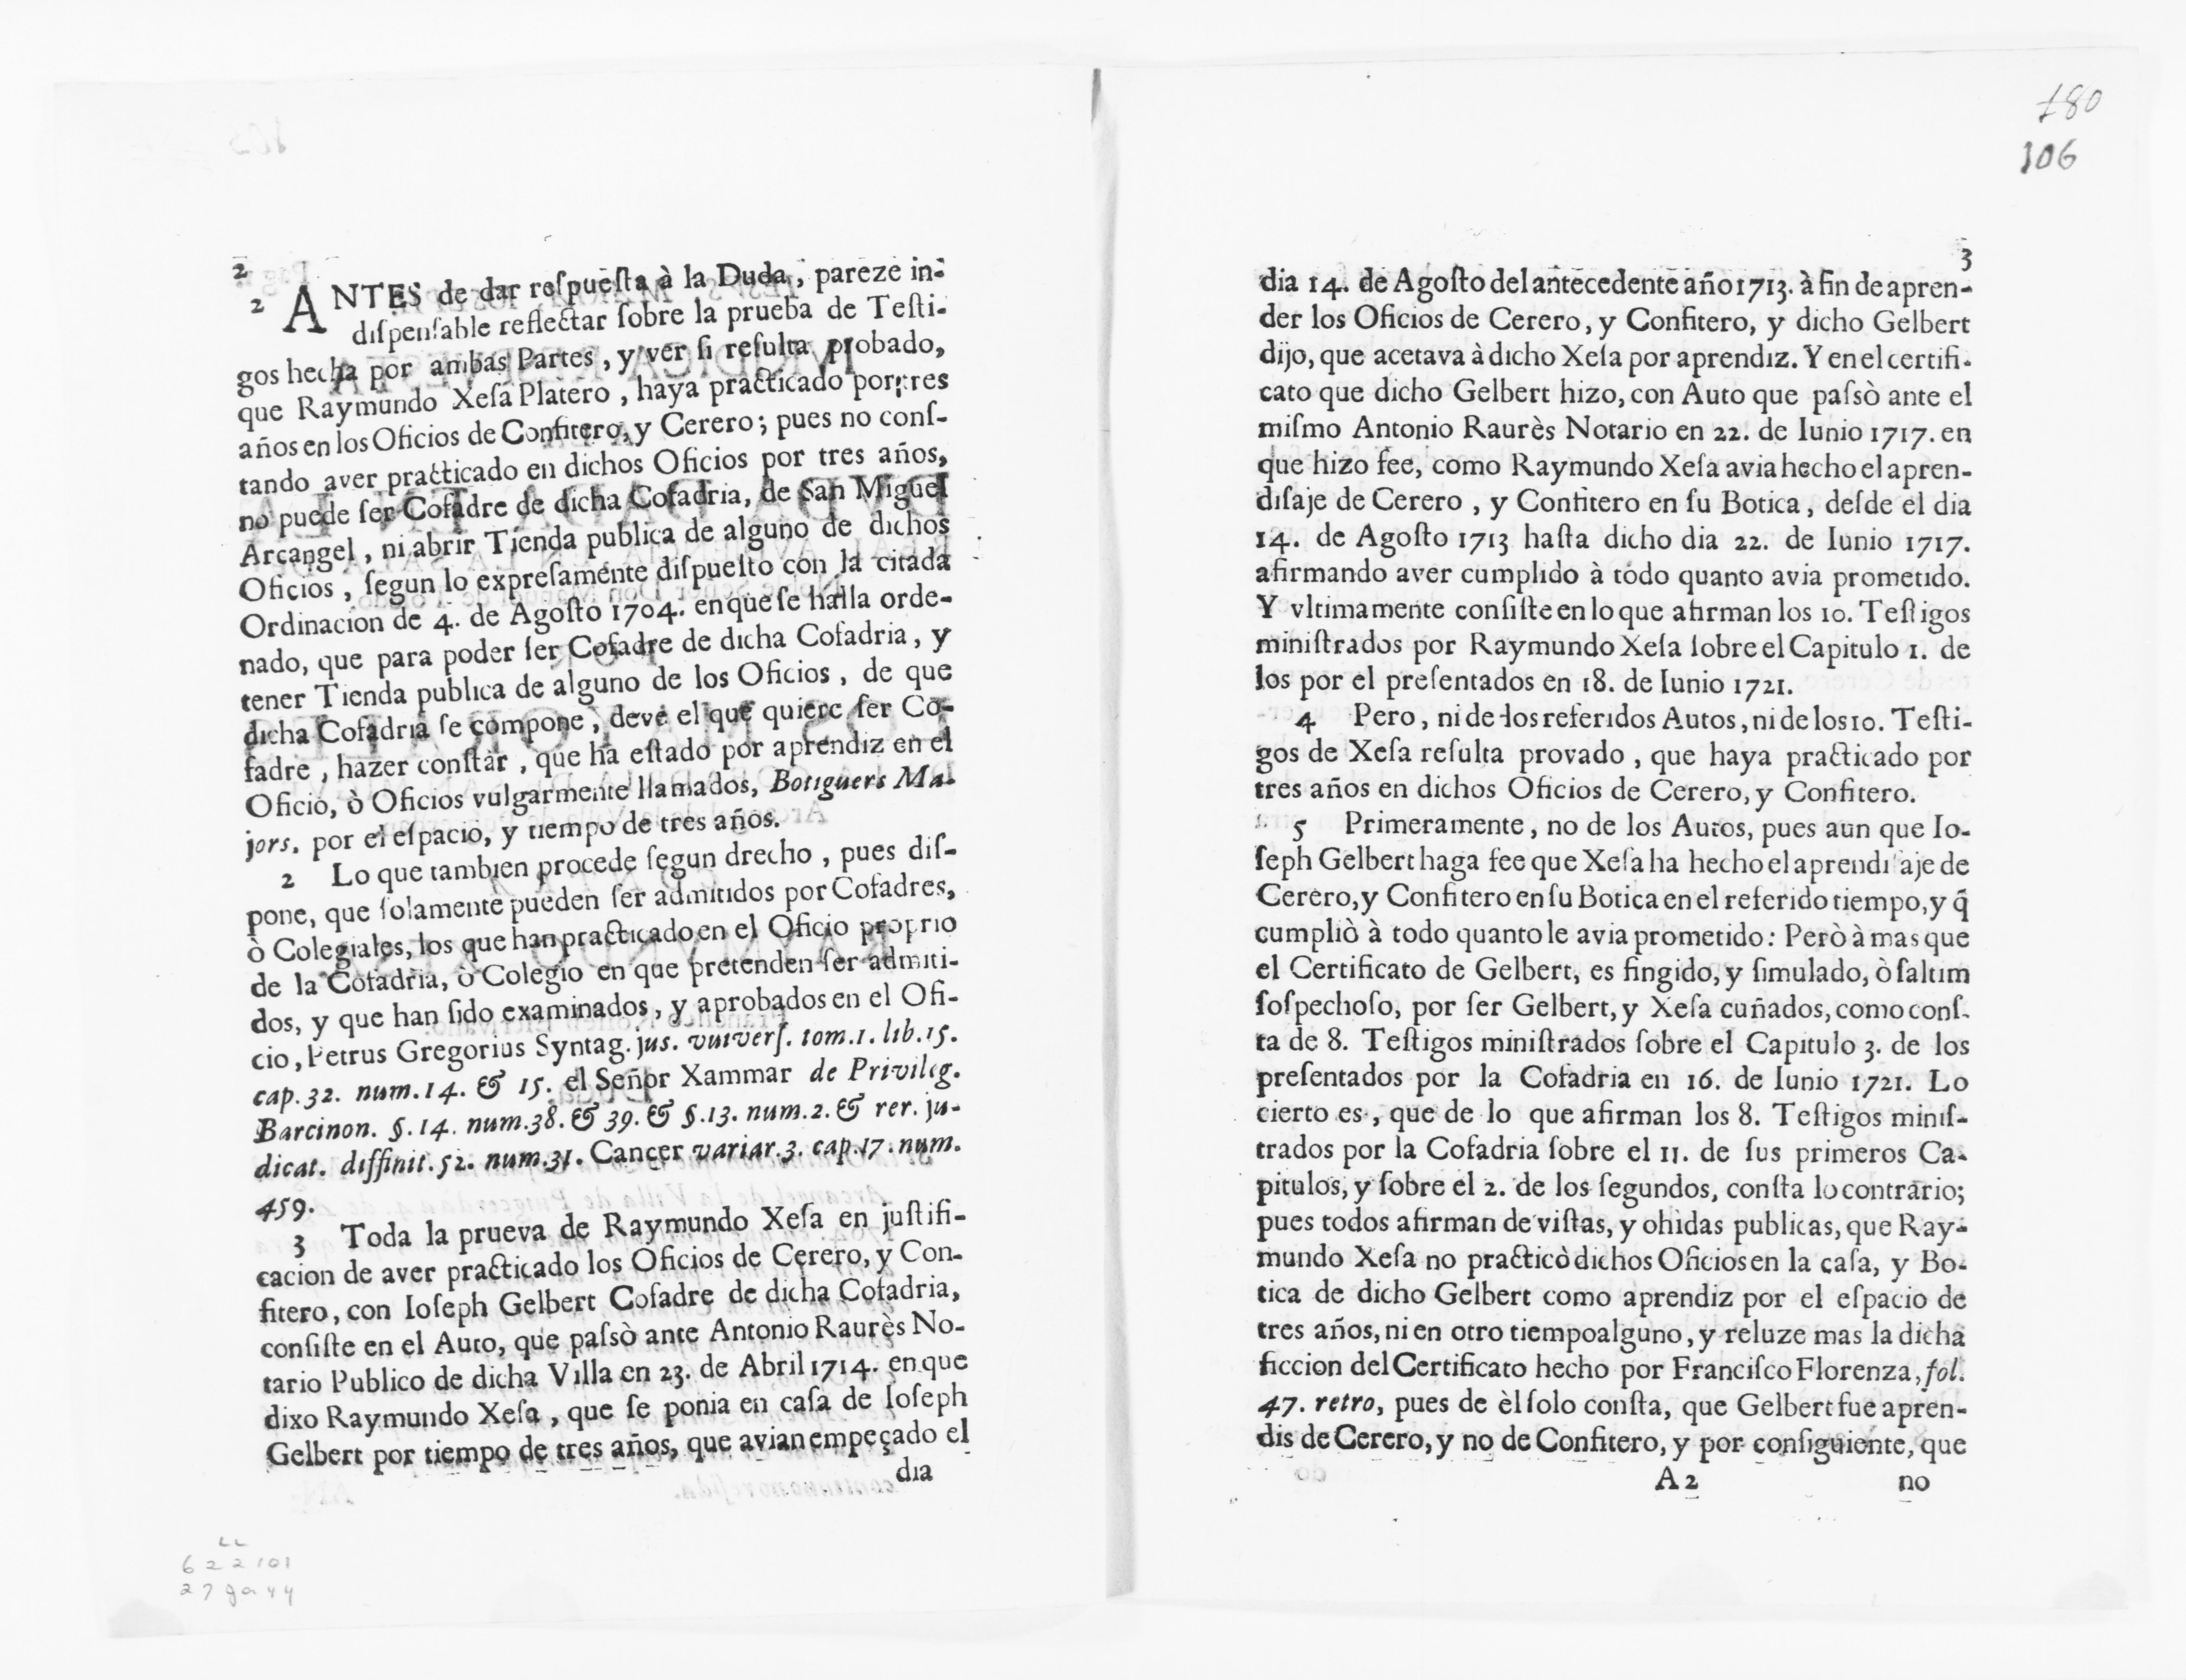 2
2 ANTES de dar reſpueſta à la Duda, pareze in-
diſpenſable reflectar ſobre la prueba de Teſti-
gos hecha por ambas Partes, y ver ſi reſulta probado,
que Raymundo Xeſa Platero, haya practicado por tres
años en los Oficios de Confitero, y Cerero; pues no conſ-
tando aver practicado en dichos Oficios por tres años,
no puede ſer Cofadre de dicha Cofadria, de San Miguel
Arcangel, ni abrir Tienda publica de alguno de dichos
Oficios, ſegun lo expreſamente diſpueſto con la citada
Ordinacion de 4. de Agoſto 1704. en que ſe halla orde-
nado, que para poder ſer Cofadre de dicha Cofadria, y
tener Tienda publica de alguno de los Oficios, de que
dicha Cofadria ſe compone, deve el que quiere ſer Co-
fadre, hazer conſtar, que ha eſtado por aprendiz en el
Oficio, ò Oficios vulgarmente llamados, Botiguers Ma-
jors. por el eſpacio, y tiempo de tres años.
2 Lo que tambien procede ſegun drecho, pues diſ-
pone, que ſolamente pueden ſer admitidos por Cofadres,
ò Colegiales, los que han practicado en el Oficio proprio
de la Cofadria, ò Colegio en que pretenden ſer admiti-
dos, y que han ſido examinados, y aprobados en el Ofi-
cio, Petrus Gregorius Syntag. jus. univerſ. tom.1. lib.15.
cap.32. num.14. & 15. el Señor Xammar de Privileg.
Barcinon. §.14. num.38. & 39. & §.13. num.2. & rer. ju-
dicat. diffinit.52. num.31. Cancer variar.3. cap.17. num.
459.
3 Toda la prueva de Raymundo Xeſa en juſtifi-
cacion de aver practicado los Oficios de Cerero, y Con-
fitero, con Ioſeph Gelbert Cofadre de dicha Cofadria,
conſiſte en el Auto, que paſsò ante Antonio Raurès No-
tario Publico de dicha Villa en 23. de Abril 1714. en que
dixo Raymundo Xeſa, que ſe ponia en caſa de Ioſeph
Gelbert por tiempo de tres años, que avian empeçado el
dia
180
106
3
dia 14. de Agoſto del antecedente año 1713. à fin de apren-
der los Oficios de Cerero, y Confitero, y dicho Gelbert
dijo, que acetava à dicho Xeſa por aprendiz. Y en el certifi-
cato que dicho Gelbert hizo, con Auto que paſsò ante el
miſmo Antonio Raurès Notario en 22. de Iunio 1717. en
que hizo fee, como Raymundo Xeſa avia hecho el apren-
diſaje de Cerero, y Confitero en ſu Botica, deſde el dia
14. de Agoſto 1713 haſta dicho dia 22. de Iunio 1717.
afirmando aver cumplido à todo quanto avia prometido.
Y vltimamente conſiſte en lo que afirman los 10. Teſtigos
miniſtrados por Raymundo Xeſa ſobre el Capitulo 1. de
los por el preſentados en 18. de Iunio 1721.
4 Pero, ni de los referidos Autos, ni de los 10. Teſti-
gos de Xeſa reſulta provado, que haya practicado por
tres años en dichos Oficios de Cerero, y Confitero.
5 Primeramente, no de los Autos, pues aun que Io-
ſeph Gelbert haga fee que Xeſa ha hecho el aprendiſaje de
Cerero, y Confitero en ſu Botica en el referido tiempo, y q̃
cumpliò à todo quanto le avia prometido: Però à mas que
el Certificato de Gelbert, es fingido, y ſimulado, ò ſaltim
ſoſpechoſo, por ſer Gelbert, y Xeſa cuñados, como conſ-
ta de 8. Teſtigos miniſtrados ſobre el Capitulo 3. de los
preſentados por la Cofadria en 16. de Iunio 1721. Lo
cierto es, que de lo que afirman los 8. Teſtigos miniſ-
trados por la Cofadria ſobre el 11. de ſus primeros Ca-
pitulos, y ſobre el 2. de los ſegundos, conſta lo contrario;
pues todos afirman de viſtas, y ohidas publicas, que Ray-
mundo Xeſa no practicò dichos Oficios en la caſa, y Bo-
tica de dicho Gelbert como aprendiz por el eſpacio de
tres años, ni en otro tiempo alguno, y reluze mas la dicha
ficcion del Certificato hecho por Franciſco Florenza, fol.
47. retro, pues de èl ſolo conſta, que Gelbert fue apren-
dis de Cerero, y no de Confitero, y por conſiguiente, que
A 2 no
622101